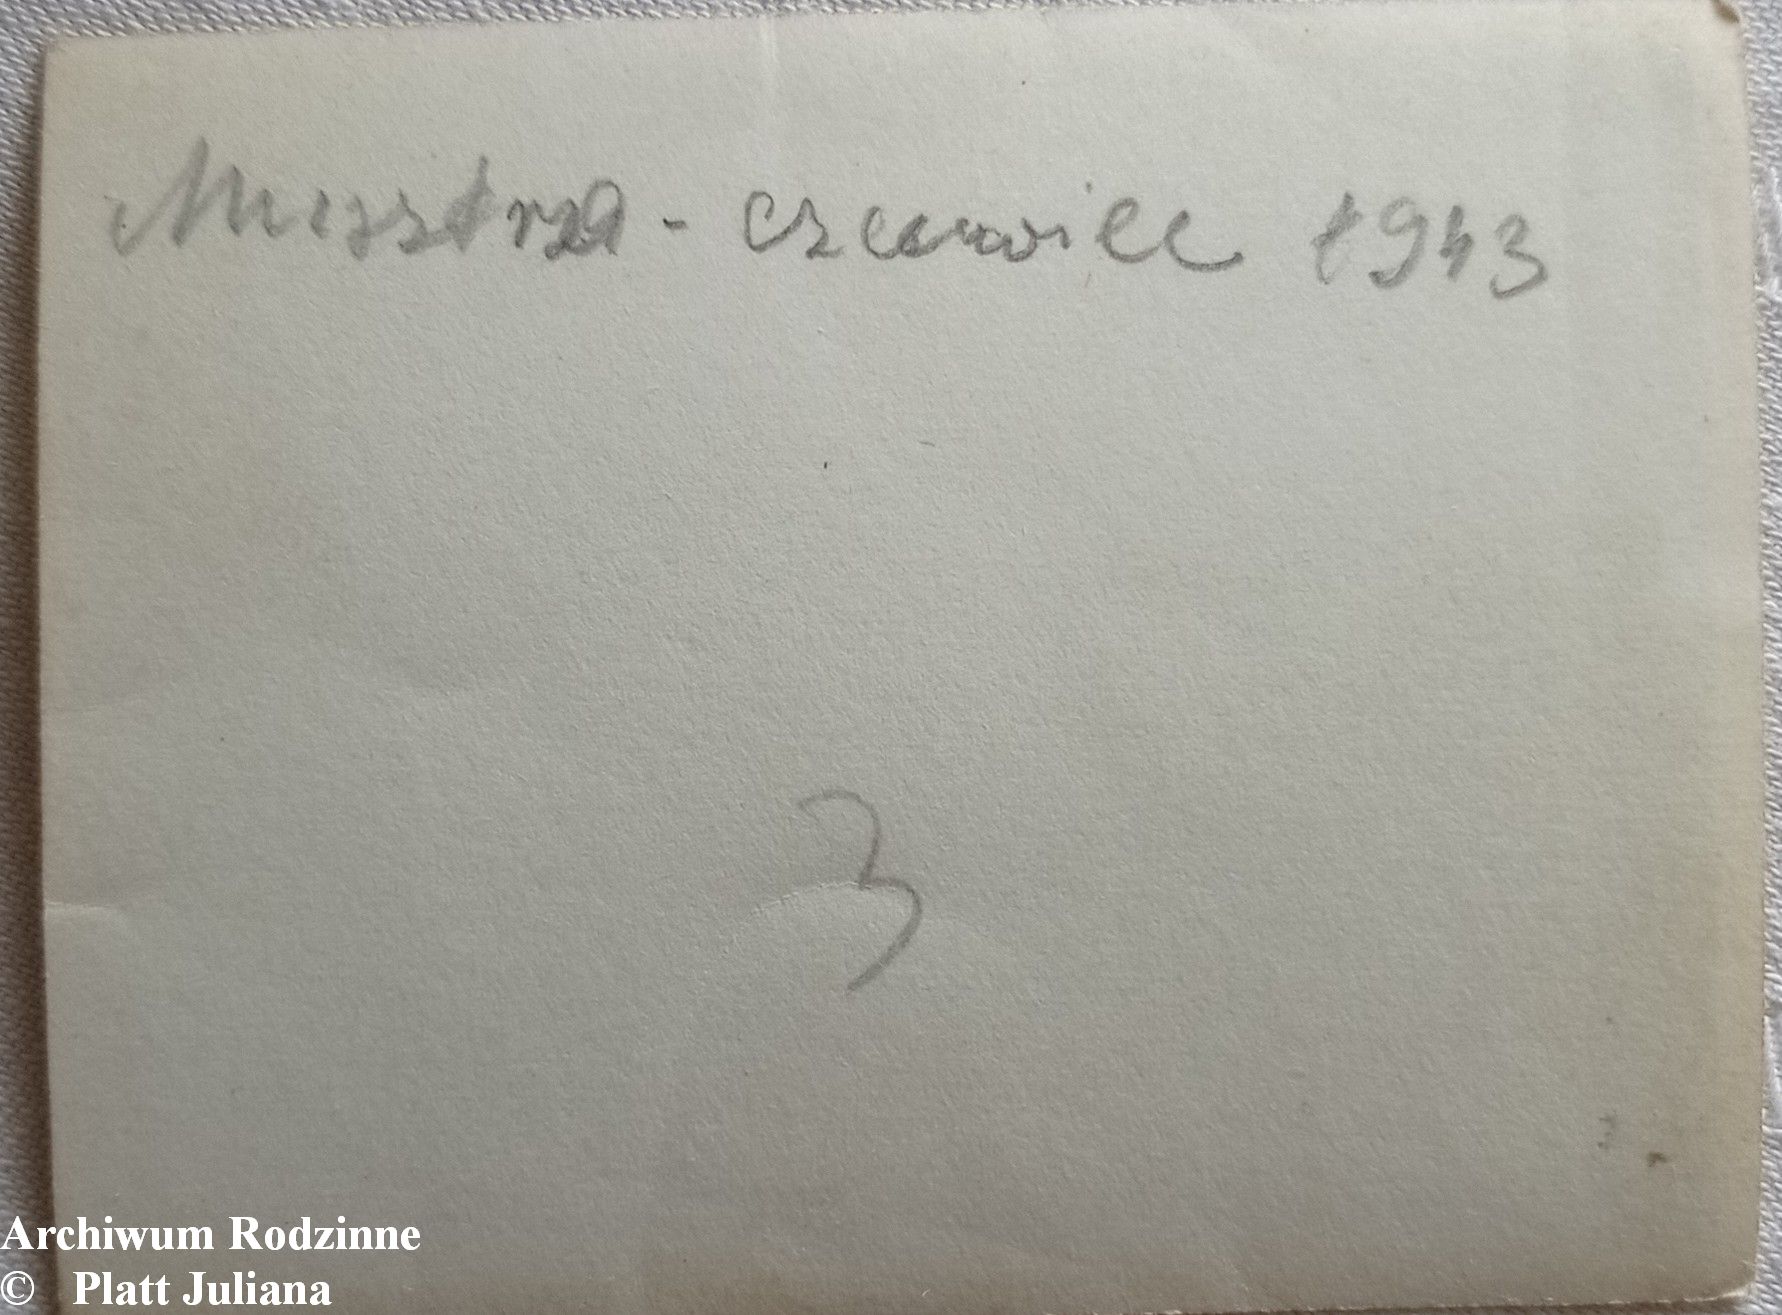 Musztra - czerwiec 1943
3
Archiwum Rodzinne
© Platt Juliana